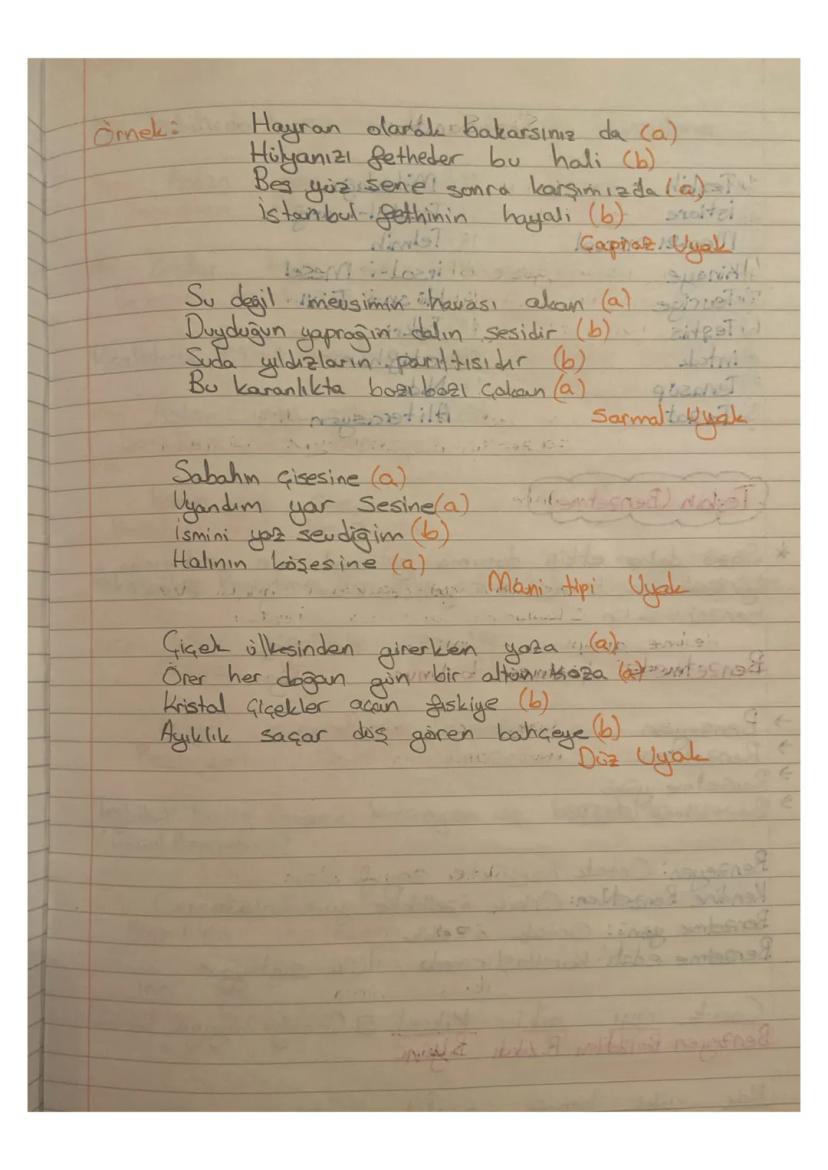 Örnek: Hayran olarak bakarsınız da (a)
Hülyanızı fetheder bu hali (b)
Beş yüz sene sonra karşımızda (a)
İstanbul fethinin hayali (b)
Çapraz Uyak
Su değil mevsimin havası akan (a)
Duyduğun yaprağın dalın sesidir (b)
Suda yıldızların parıltısıdır (b)
Bu karanlıkta bazı bazı çakan (a)
Sarmal Uyak
Sabahın çisesine (a)
Uyandım yar sesine (a)
İsmini yaz sevdiğim (b)
Halının köşesine (a)
Mani tipi Uyak
Çiçek ülkesinden girerken yaza (a)
Örer her doğan gün bir altın koza (a)
Kristal çiçekler açan fıskiye (b)
Ayıklık saçar düş gören bahçeye (b)
Düz Uyak